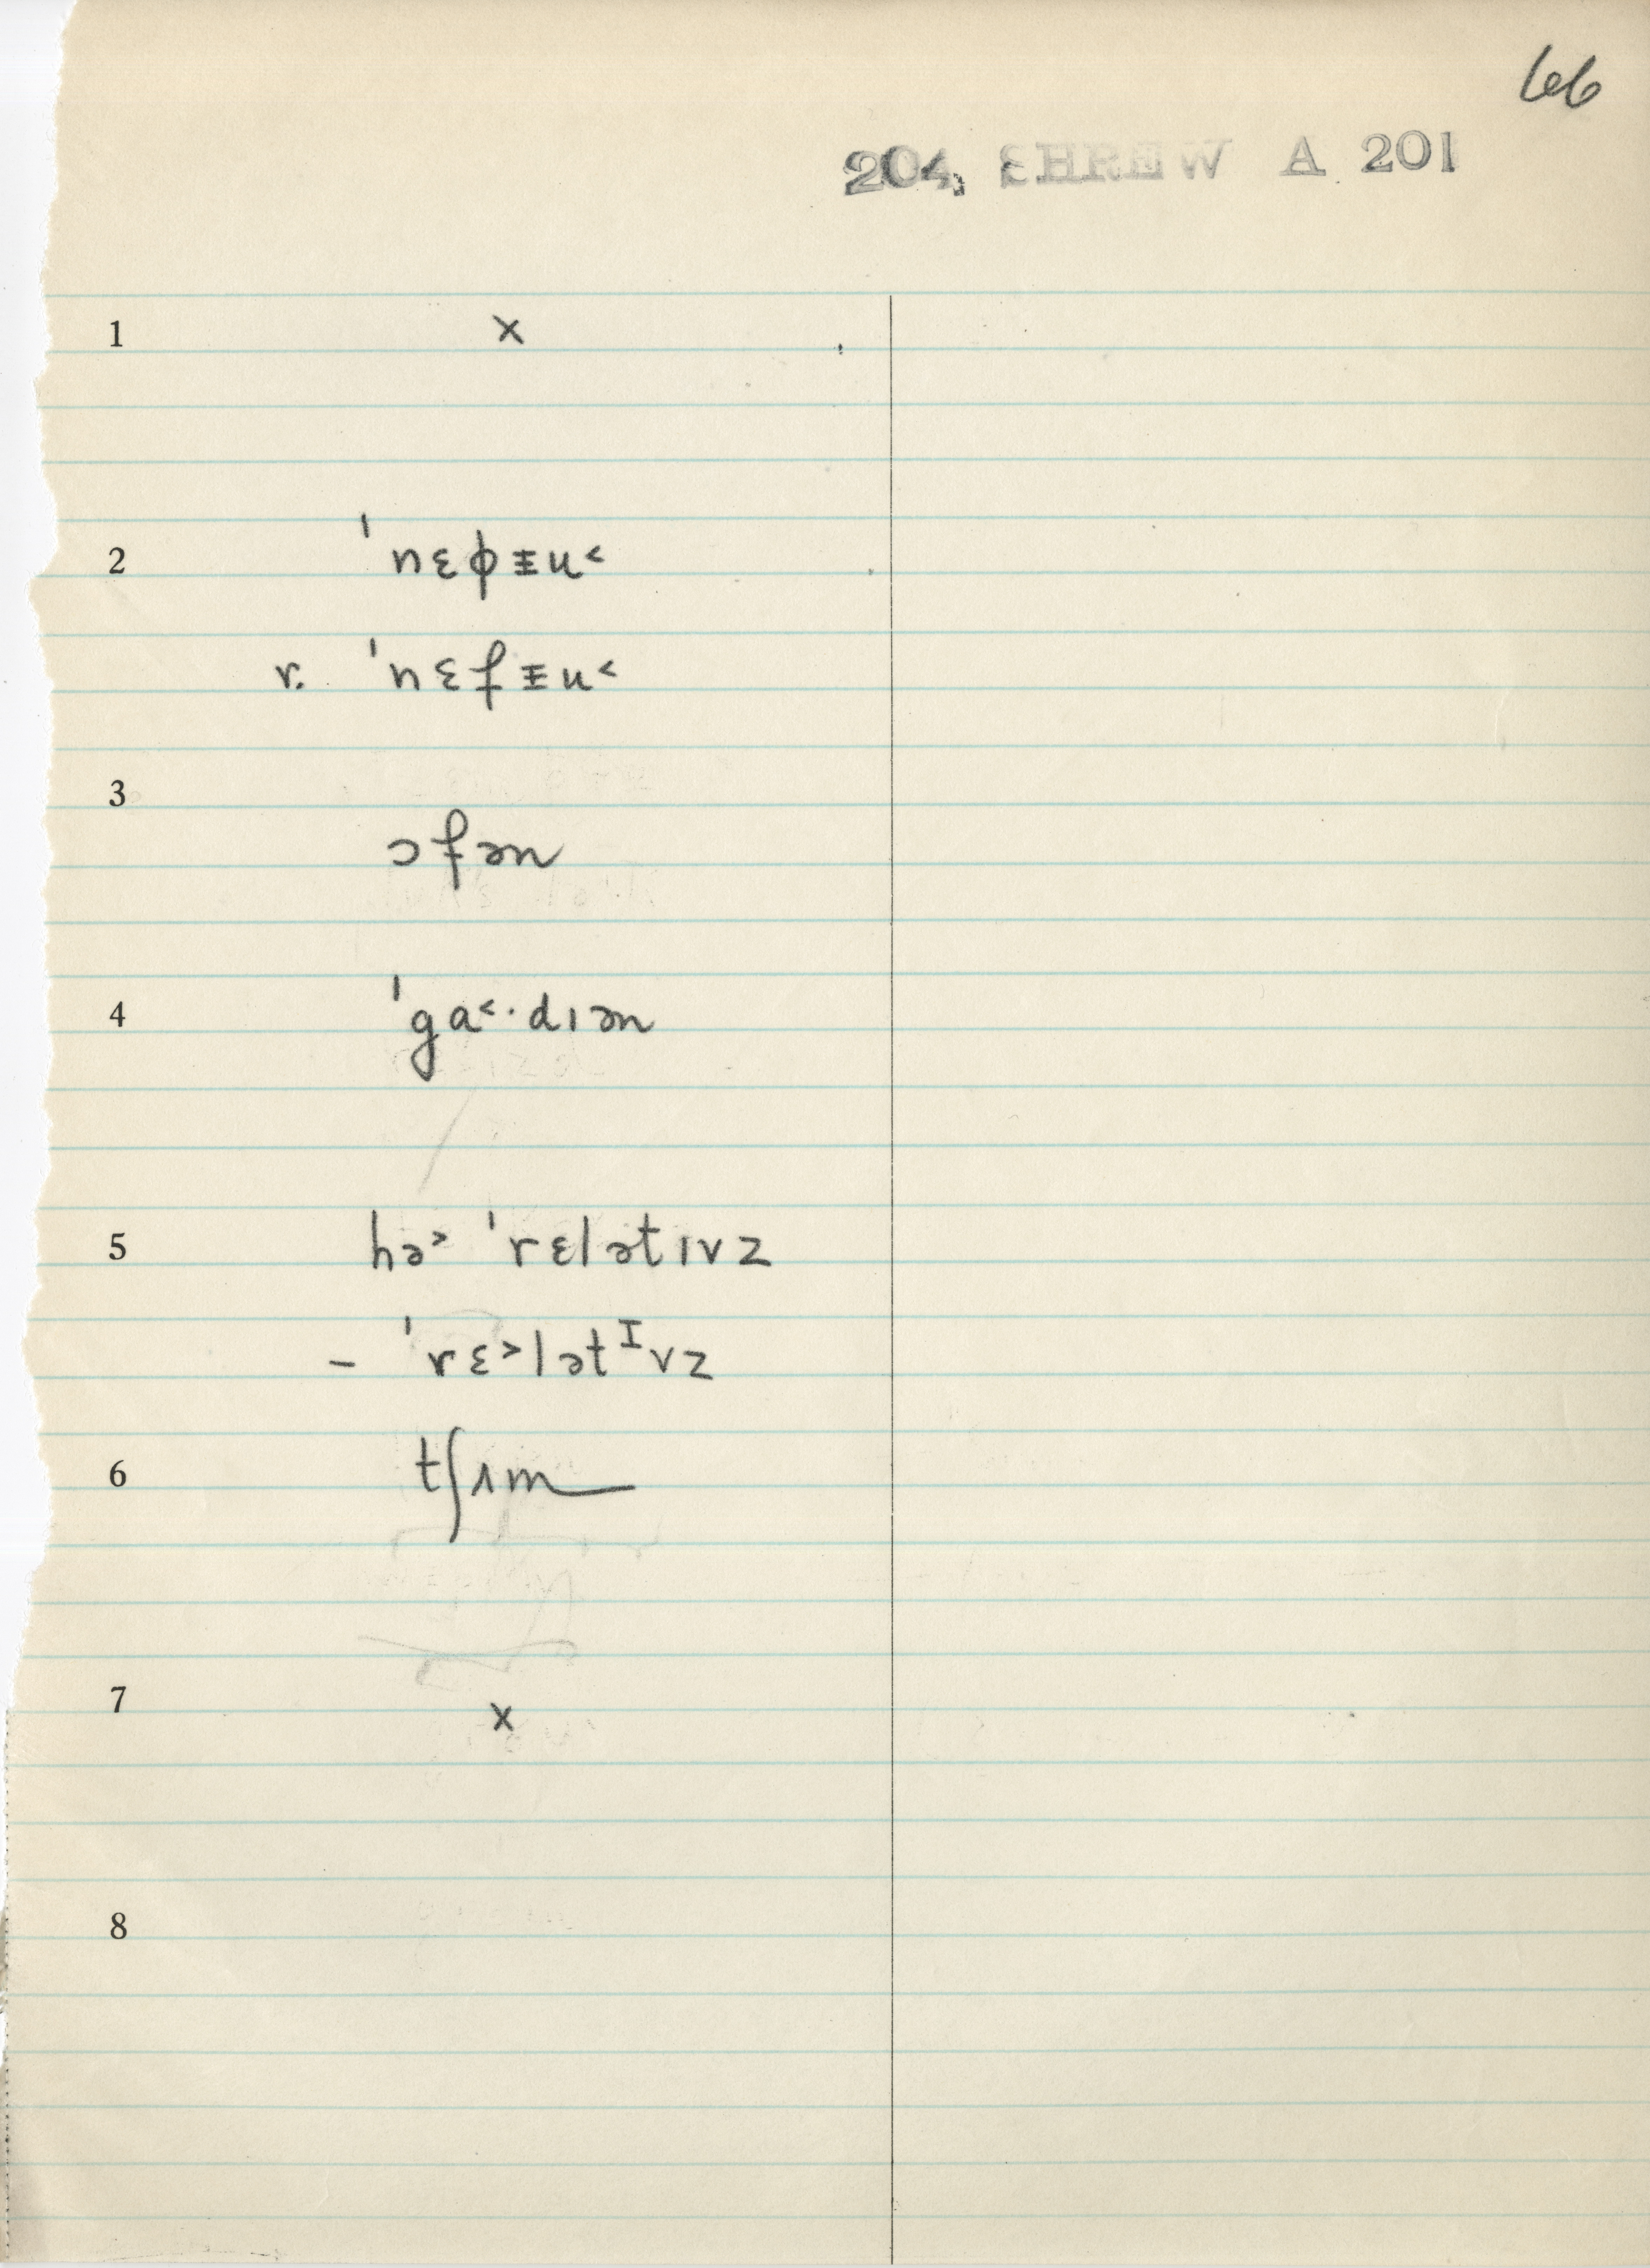 66
204, SHREW A 201
1 x
2 ˈnɛɸᵻu˂
r. ˈnɛfᵻu˂
3 ɔfən
4 ˈga˂·dɪən
5 hə˃ ˈrɛlətɪvz
– ˈrɛ˃lətᴵvz
6 tʃʌm
7 x
8